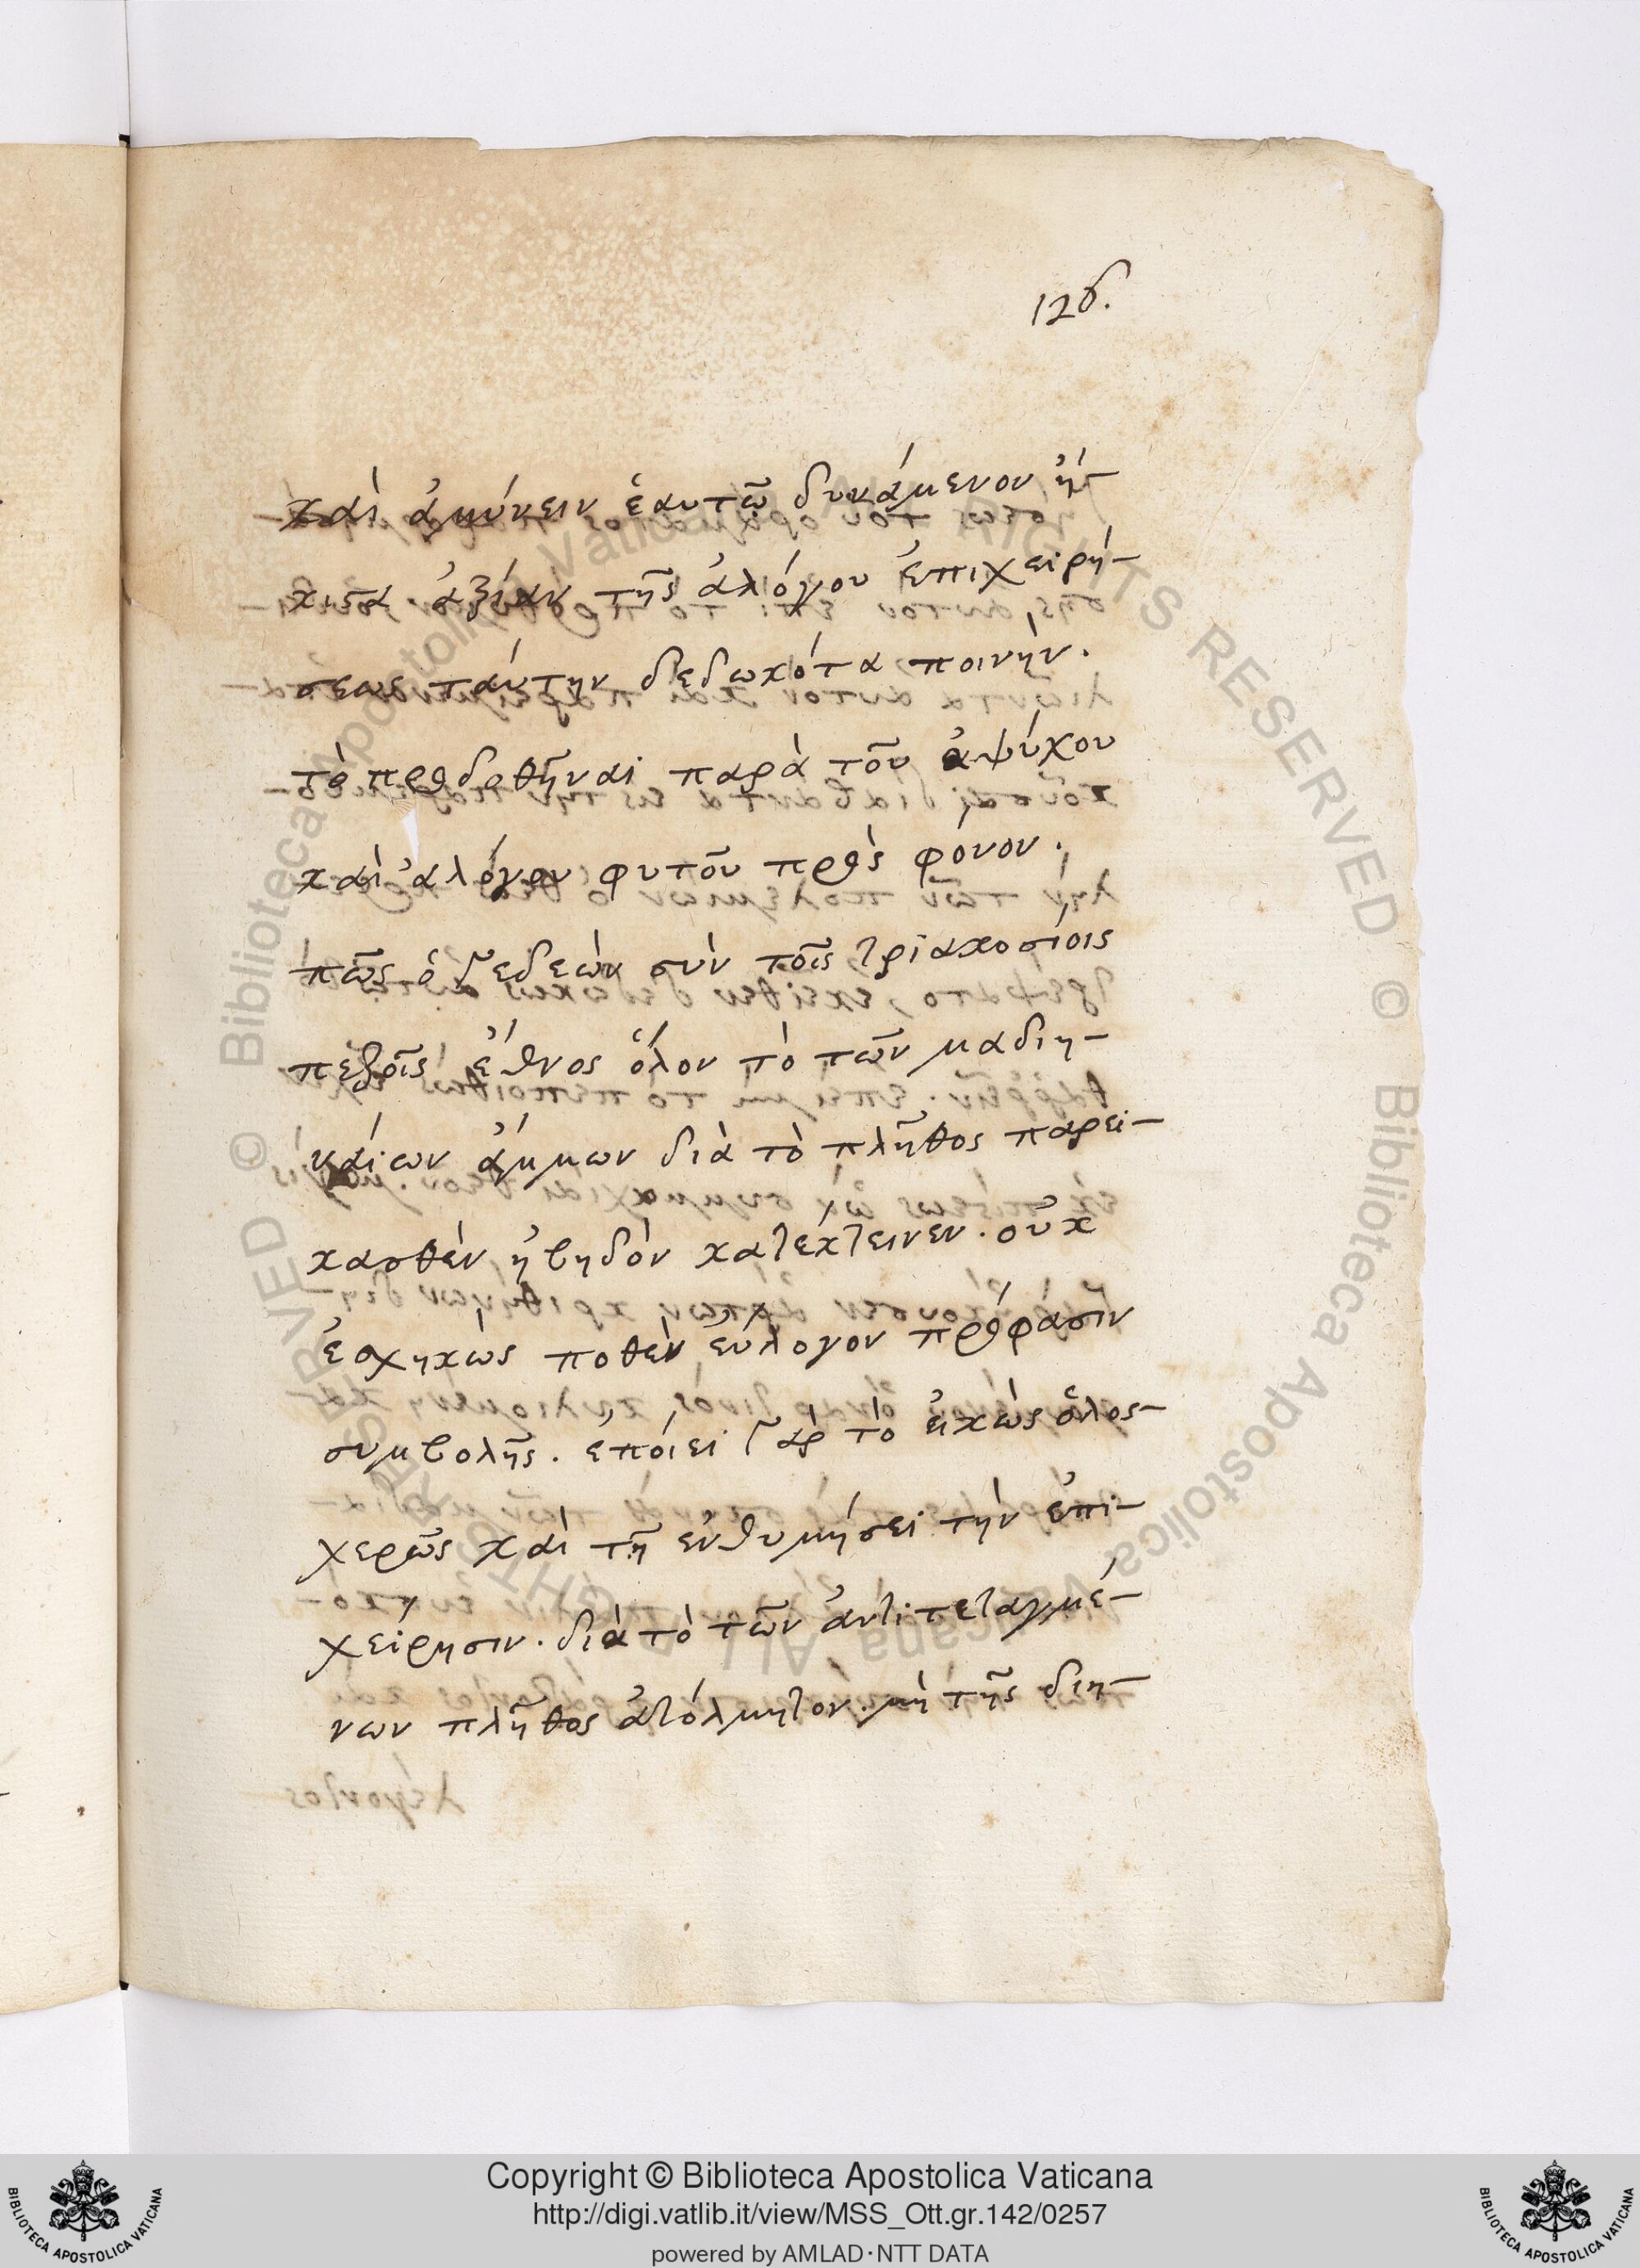 126.
καὶ ἀμύνειν ἑαυτῶ δυνάμενον ἥ-
κιστα ἀξίαν τῆς ἀλόγου ἐπιχειρή-
σεως ταύτην δεδωκότα ποινήν.
τὸ προδοθῆναι παρὰ τοῦ ἀψύχου
καὶ ἀλόγου φυτοῦ πρὸς φόνον.
πῶς ὁ Γεδεὼν σὺν τοῖς τριακοσίοις
πεζοῖς ἔθνος ὅλον τὸ τῶν μαδιη-
ναίων ἄμμων διὰ τὸ πλῆθος παρει-
κασθὲν ἡβηδὸν κατέκτεινεν. οὐκ
ἐσχηκὼς ποθὲν εὔλογον πρόφασιν
συμβολῆς. ἐποίει γὰρ τὸ εἰκὼς ὅλος-
χερῶς καὶ τῆ ἐνθυμήσει τὴν ἐπι-
χείρησιν. διὰ τὸ τῶν ἀντιτεταγμέ-
νων πλῆθος ἀτόλμητον. μὴ τῆς διη-
Copyright © Biblioteca Apostolica Vaticana
http://digi.vatlib.it/view/MSS_Ott.gr.142/0257
powered by AMLAD·NTT DATA
BIBLIOTECA APOSTOLICA VATICANA
BIBLIOTECA APOSTOLICA VATICANA